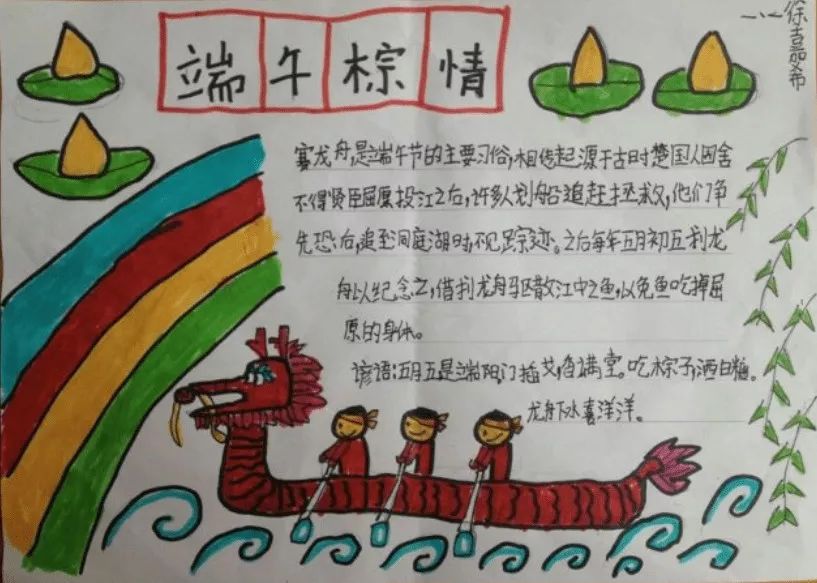 端午棕情
一、一 徐嘉希
赛龙舟,是端午节的主要习俗,相传起源于古时楚国人因舍
不得贤臣屈原投江之后,许多人划船追赶拯救,他们争
先恐后,追至洞庭湖时不见踪迹。之后每年五月初五划龙
舟以纪念之,借划龙舟驱散江中之鱼,以免鱼吃掉屈
原的身体。
谚语:五月五是端阳,门插艾,香满堂。吃粽子,洒白糖。
龙舟下水喜洋洋。